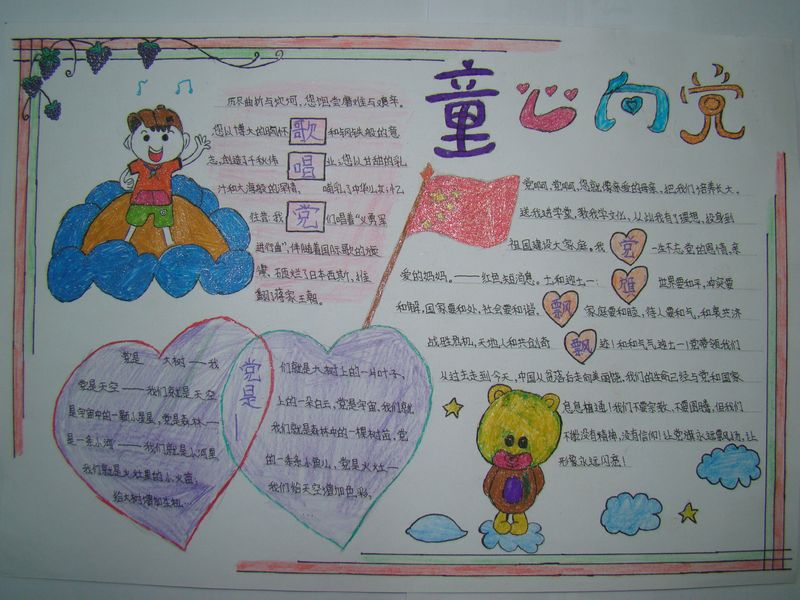 童心向党
历尽曲折与坎坷，您饱尝磨难与艰辛。
您以博大的胸怀 歌 和钢铁般的意
志，创造了千秋伟 唱 业；您以甘甜的乳
汁和大海般的深情， 哺乳了中华儿女；忆
往昔：我 党 们唱着“义勇军
进行曲”，伴随着国际歌的
烂了日本西斯，推
翻蒋家王朝。
党啊，党啊，您就像亲爱的母亲，把我们培养长大，
送我进学堂，教我学文化，从此我有了理想，投身到
祖国建设大家庭。我 党 一生不忘党的恩情，亲
爱的妈妈。——红色知消息。七和迎七一： 旗 世界要和平，冲突要
和解，国家要和处，社会要和谐， 飘 家庭要和睦，待人要和气，和衷共济
战胜危机，天地人和共创奇 飘 迹！和和气气迎七一！党带领我们
从过去走到今天，中国从贫落后走向美国强，我们的生命已经与党和国家
息息相通！我们不要宗教，不要图腾，但我们
不能没有精神，没有信仰！让党旗永远飘扬，让
形象永远闪亮！
党是 大树——我
党是天空——我们就是天空
是宇宙中的一颗小星星，党是森林—
是一条小河——我们就是小河里
我们就是火灶里的小火苗，
给大树增加生机…
党是—
们就是大树上的一片叶子、
上的一朵白云，党是宇宙，我们就
我们就是森林中的一棵树苗，党
的一条条小鱼儿，党是火灶—
我们给天空增加色彩，